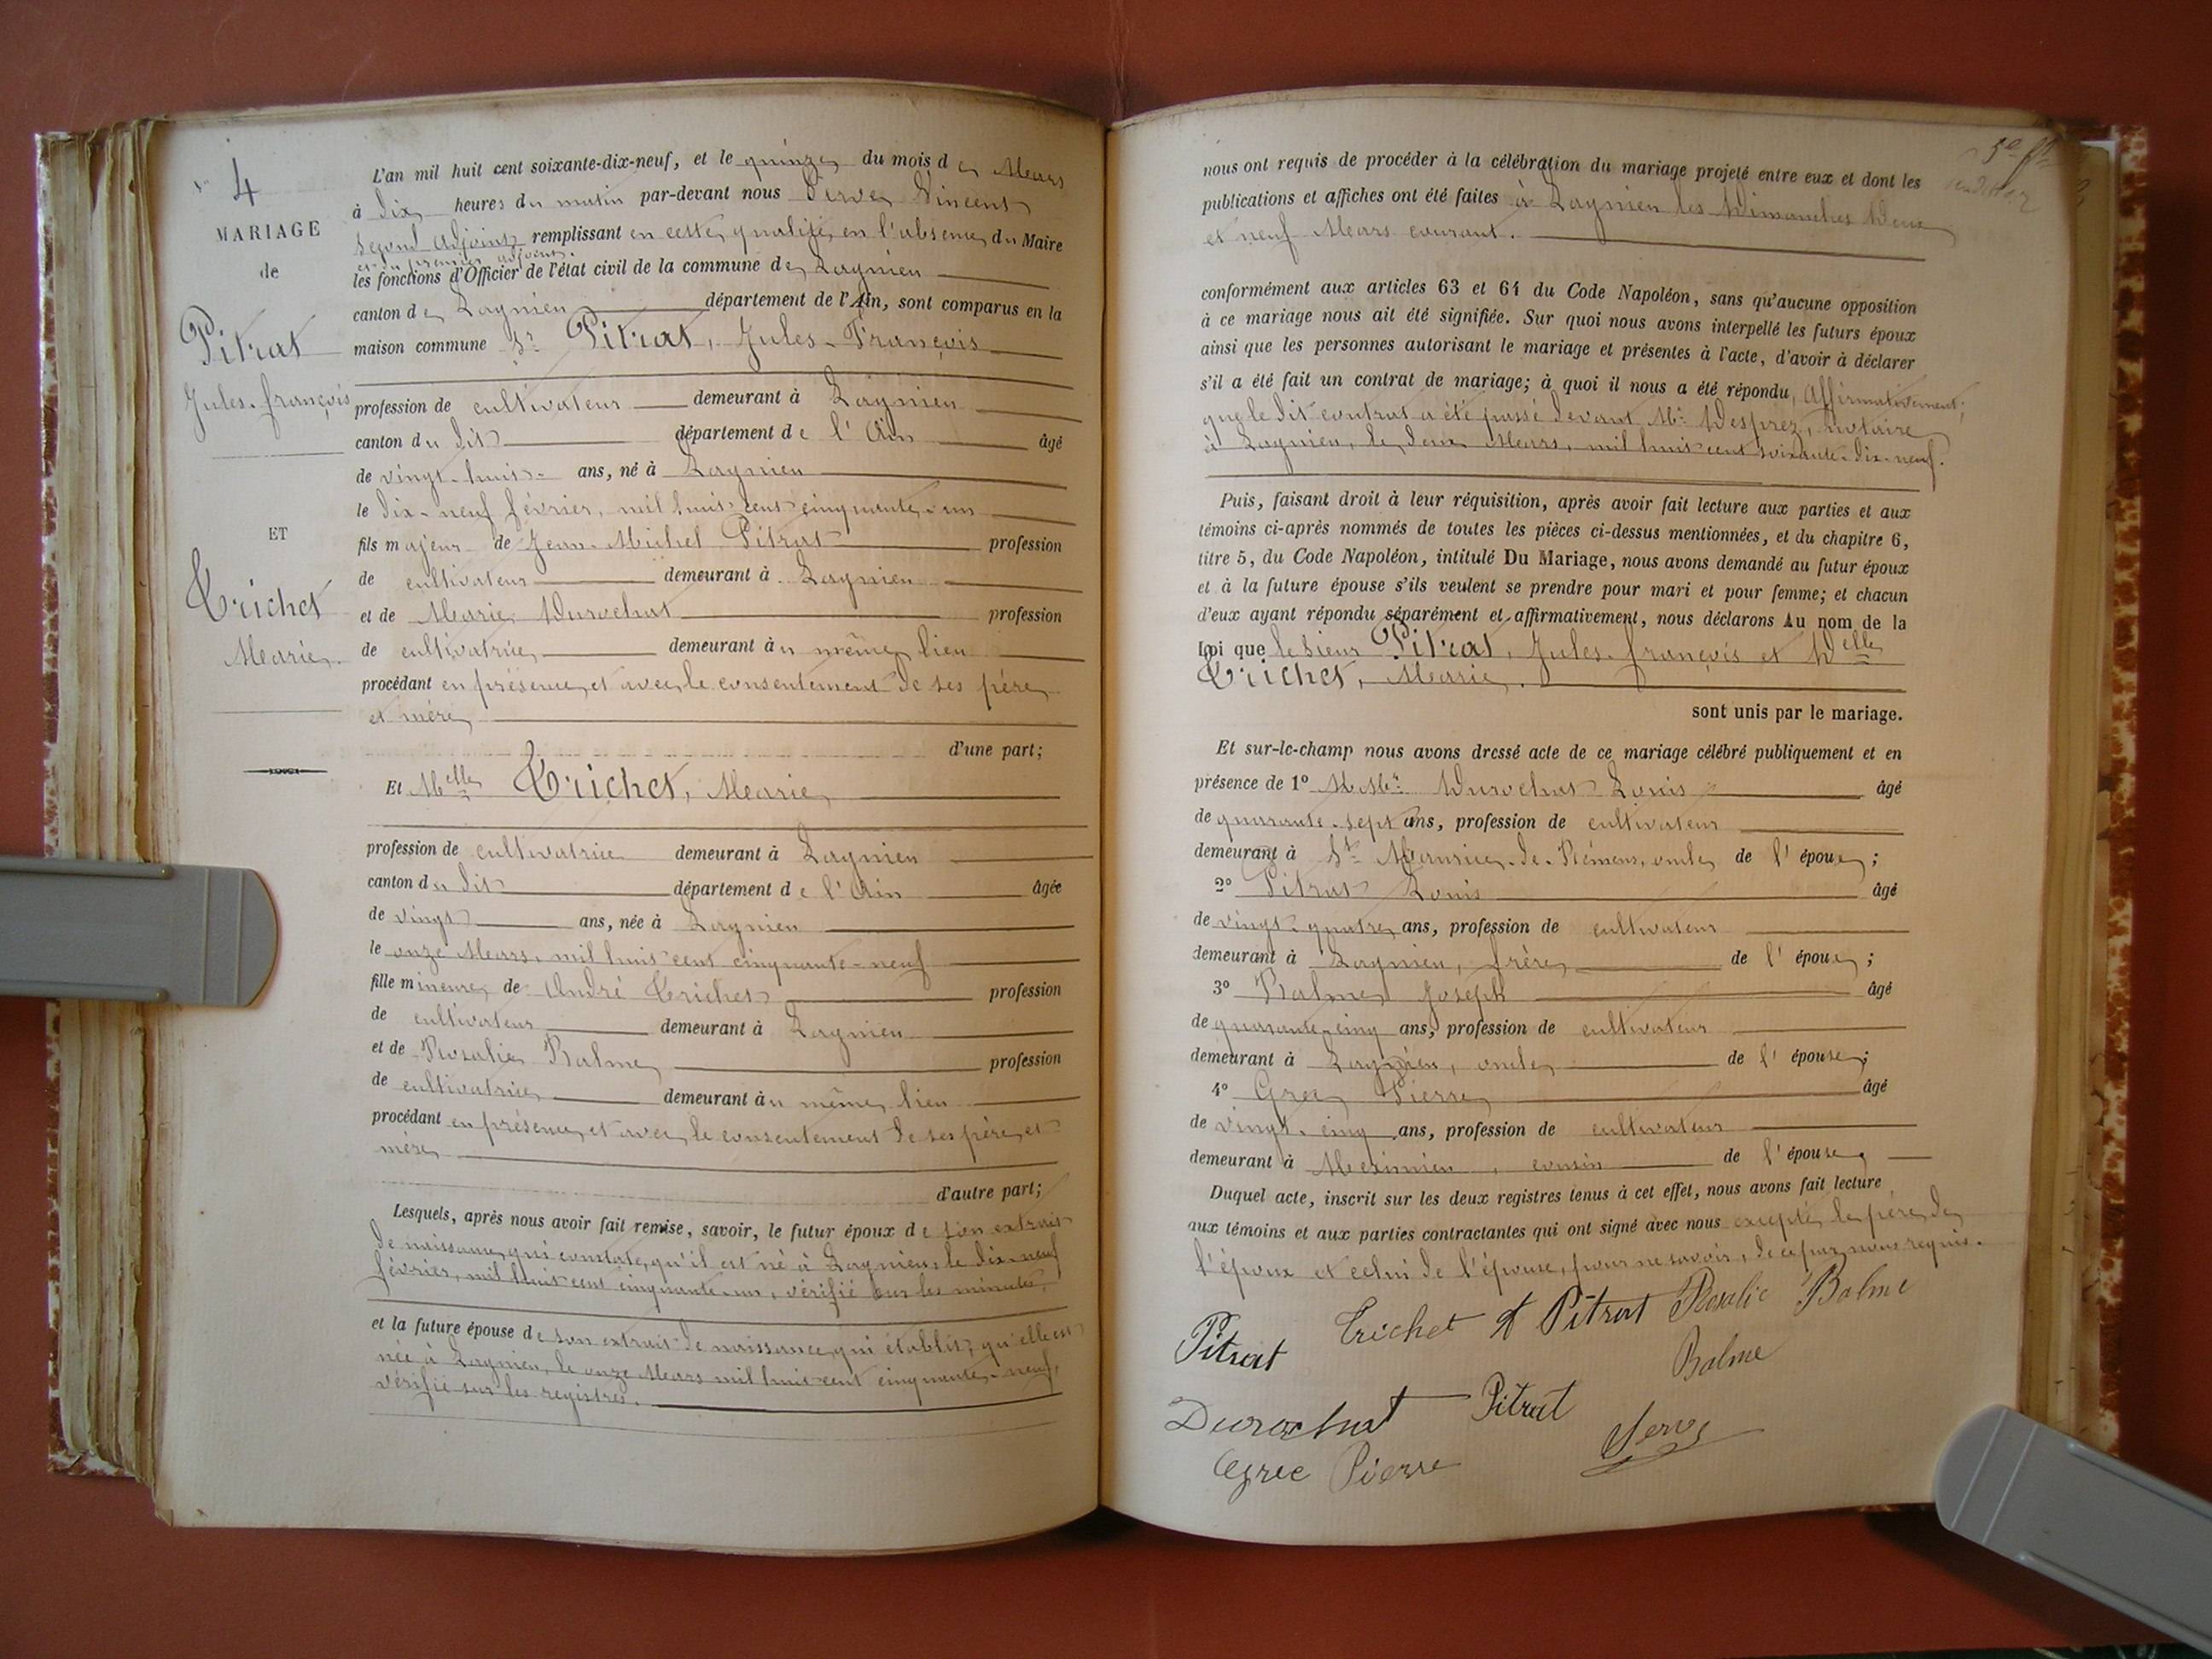 N° 4
MARIAGE
de
Pitrat
Jules-françois
ET
Trichet
Marie.
L'an mil huit cent soixante-dix-neuf, et le quinze du mois de Mars
à dix heures du matin par-devant nous Serve Vincent
second adjoint remplissant en cette qualité, en l'absence du Maire
et du premier adjoint.
les fonctions d'Officier de l'état civil de la commune de Lagnieu
canton de Lagnieu département de l'Ain, sont comparus en la
maison commune Sr Pitrat, Jules-François
profession de cultivateur demeurant à Lagnieu
canton du dit département de l'Ain âgé
de vingt-huit ans, né à Lagnieu
le dix-neuf février, mil huit cent cinquante-un
fils majeur de Jean-Michel Pitrat profession
de cultivateur demeurant à Lagnieu
et de Marie Durochat profession
de cultivatrice demeurant au même lieu
procédant en présence et avec le consentement de ses père
et mère
d'une part;
Et Melle Trichet, Marie
profession de cultivatrice demeurant à Lagnieu
canton du dit département de l'Ain âgée
de vingt ans, née à Lagnieu
le onze Mars, mil huit cent cinquante-neuf
fille mineure de André Trichet profession
de cultivateur demeurant à Lagnieu
et de Rosalie Balme profession
de cultivatrice demeurant au même lieu
procédant en présence et avec le consentement de ses père et
mère
d'autre part;
Lesquels, après nous avoir fait remise, savoir, le futur époux de son extrait
de naissance qui constate qu'il est né à Lagnieu, le dix-neuf
février, mil huit cent cinquante-un, vérifié sur les minutes.
et la future épouse de son extrait de naissance, qui établit, qu'elle est
née à Lagnieu, le onze Mars mil huit cent cinquante-neuf,
vérifié sur les registres.
nous ont requis de procéder à la célébration du mariage projeté entre eux et dont les
publications et affiches ont été faites à Lagnieu les Dimanches Deux
et neuf Mars courant.
conformément aux articles 63 et 64 du Code Napoléon, sans qu'aucune opposition
à ce mariage nous ait été signifiée. Sur quoi nous avons interpellé les futurs époux
ainsi que les personnes autorisant le mariage et présentes à l'acte, d'avoir à déclarer
s'il a été fait un contrat de mariage; à quoi il nous a été répondu, Affirmativement;
que le dit contrat a été passé devant Me Desprez, notaire
à Lagnieu, le deux Mars, mil huit cent soixante-dix-neuf.
Puis, faisant droit à leur réquisition, après avoir fait lecture aux parties et aux
témoins ci-après nommés de toutes les pièces ci-dessus mentionnées, et du chapitre 6,
titre 5, du Code Napoléon, intitulé Du Mariage, nous avons demandé au futur époux
et à la future épouse s'ils veulent se prendre pour mari et pour femme; et chacun
d'eux ayant répondu séparément et affirmativement, nous déclarons Au nom de la
Loi que le Sieur Pitrat, Jules-françois et Delle
Trichet, Marie.
sont unis par le mariage.
Et sur-le-champ nous avons dressé acte de ce mariage célébré publiquement et en
présence de 1° Durochat Louis âgé
de quarante-sept ans, profession de cultivateur
demeurant à St Maurice-de-Rémens, oncle de l'époux;
2° Pitrat Louis âgé
de vingt-quatre ans, profession de cultivateur
demeurant à Lagnieu, frère de l'époux;
3° Balme Joseph âgé
de quarante-cinq ans, profession de cultivateur
demeurant à Lagnieu, oncle de l'épouse;
4° Grec Pierre âgé
de vingt-cinq ans, profession de cultivateur
demeurant à Meximieu, cousin de l'épouse,
Duquel acte, inscrit sur les deux registres tenus à cet effet, nous avons fait lecture
aux témoins et aux parties contractantes qui ont signé avec nous excepté le père de
l'époux et celui de l'épouse, pour ne savoir, de ce par nous requis.
Pitrat Trichet f Pitrat Rosalie Balme
Balme
Durochat Pitrat
Serve
Grec Pierre